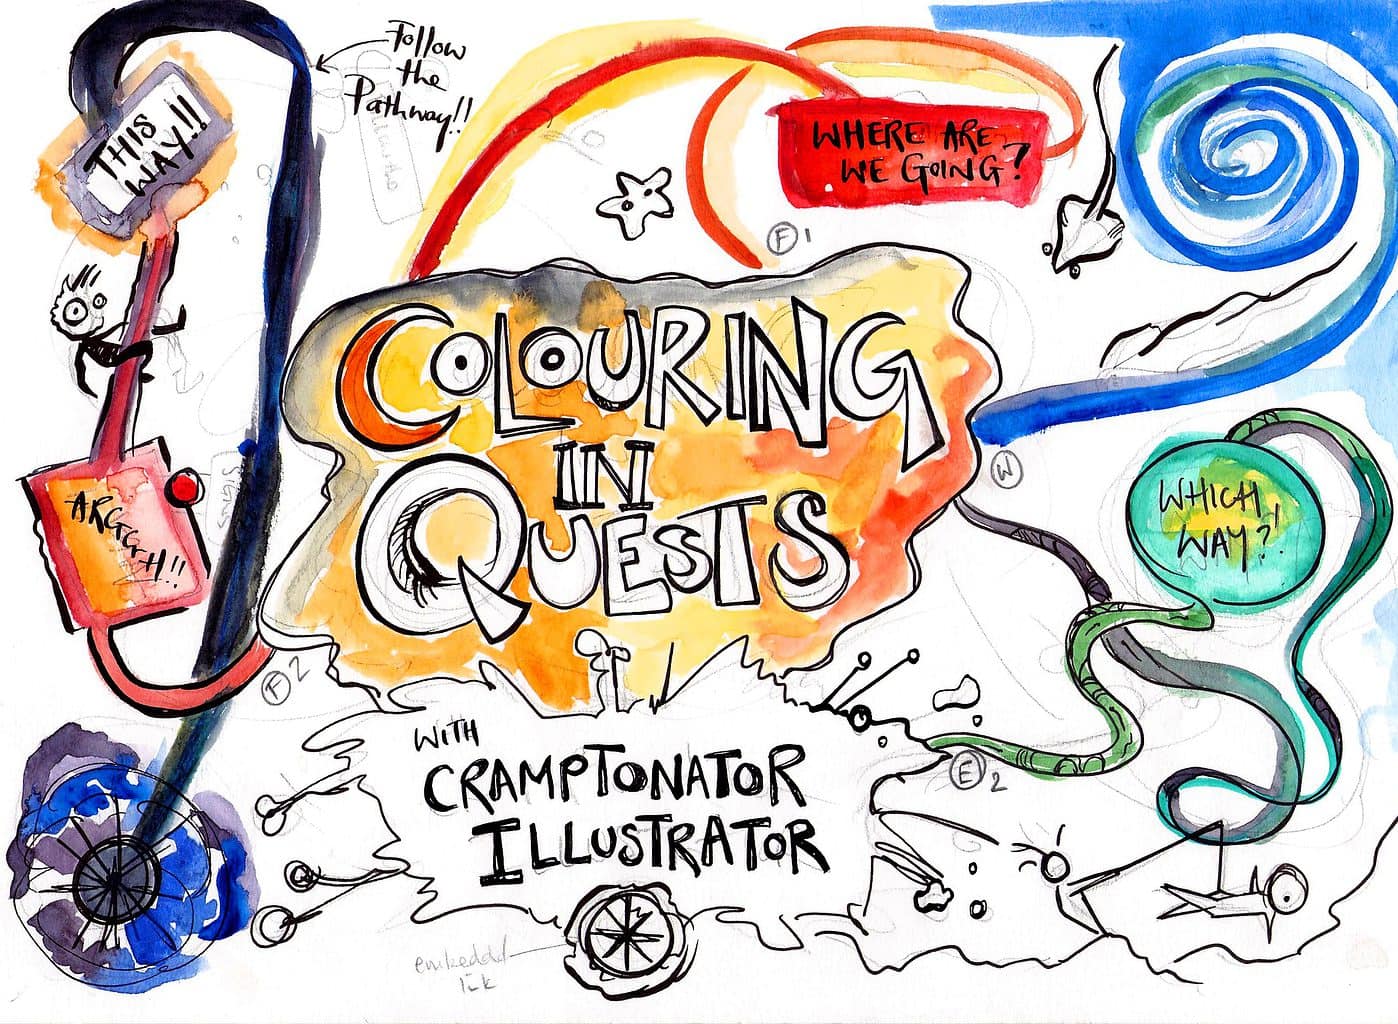 Follow
the
Pathway!!
THIS
WAY!!
WHERE ARE
WE GOING?
F 1
COLOURING
IN
QUESTS
W
WHICH
WAY?!
ARGGGH!!
SIGNS
F 2
E 2
WITH
CRAMPTONATOR
ILLUSTRATOR
embedded
link